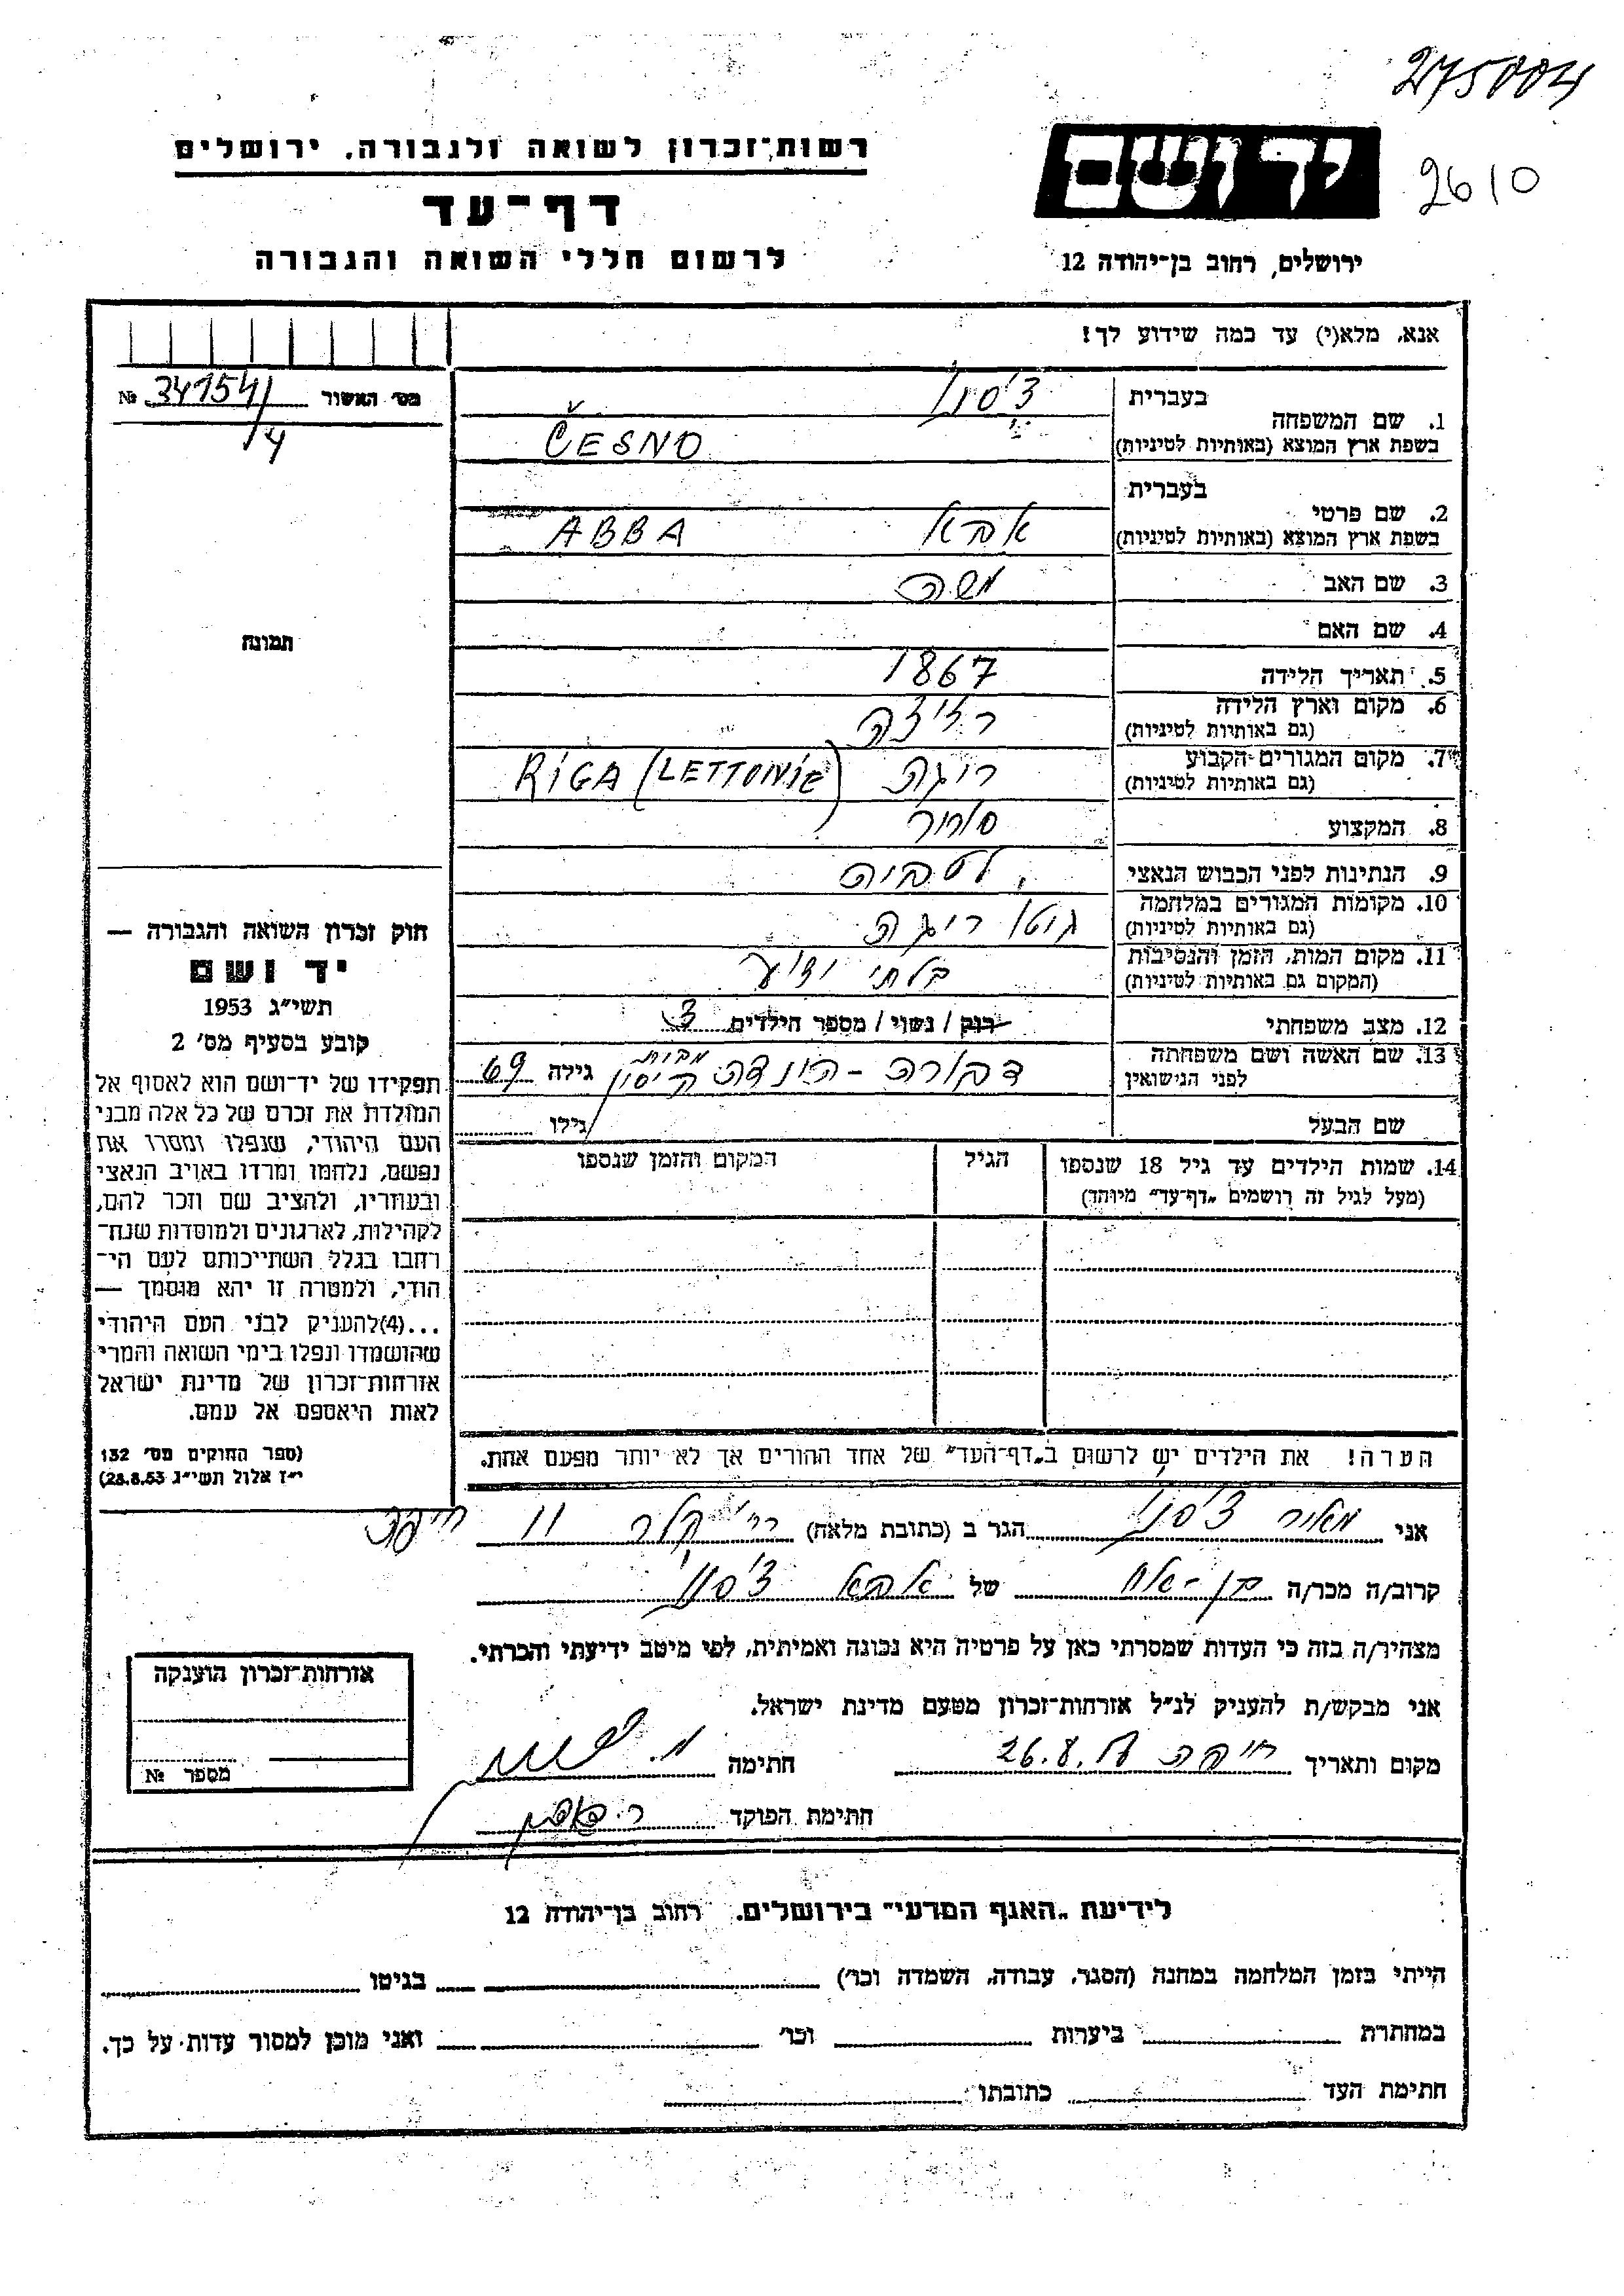 275004
רשות־זכרון לשואה ולגבורה, ירושלים
יד ושם
2610
דף־עד
לרשום חללי השואה והגבורה
ירושלים, רחוב בן־יהודה 12
אנא, מלא(י) עד כמה שידוע לך!
מס׳ האשור 341541 №
/4
1. שם המשפחה
בעברית צ'סנו
בשפת ארץ המוצא (באותיות לטיניות) ČESNO
2. שם פרטי
בעברית
בשפת ארץ המוצא (באותיות לטיניות) אבא ABBA
3. שם האב משה
4. שם האם
תמונה
5. תאריך הלידה 1867
6. מקום וארץ הלידה רז'יצה
(גם באותיות לטיניות)
7. מקום המגורים הקבוע ריגה RIGA (LETTONIE)
(גם באותיות לטיניות)
8. המקצוע סוחר
9. הנתינות לפני הכבוש הנאצי לטביה
10. מקומות המגורים במלחמה גיטו ריגה
(גם באותיות לטיניות)
11. מקום המות, הזמן והנסיבות בלתי ידוע
(המקום גם באותיות לטיניות)
12. מצב משפחתי רוק / נשוי / מספר הילדים 3
13. שם האשה ושם משפחתה דבורה - הינדה מבית גילה 69
לפני הנישואין
שם הבעל גילו
14. שמות הילדים עד גיל 18 שנספו הגיל המקום והזמן שנספו
(מעל לגיל זה רושמים „דף־עד״ מיוחד)
חוק זכרון השואה והגבורה —
יד ושם
תשי״ג 1953
קובע בסעיף מס׳ 2
תפקידו של יד־ושם הוא לאסוף אל
המולדת את זכרם של כל אלה מבני
העם היהודי, שנפלו ומסרו את
נפשם, נלחמו ומרדו באויב הנאצי
ובעוזריו, ולהציב שם וזכר להם,
לקהילות, לארגונים ולמוסדות שנח־
רחבו בגלל השתייכותם לעם הי־
הודי, ולמטרה זו יהא מוסמך —
...(4)להעניק לבני העם היהודי
שהושמדו ונפלו בימי השואה והמרי
אזרחות־זכרון של מדינת ישראל
לאות היאספם אל עמם.
(ספר החוקים מס׳ 132
י״ז אלול תשי״ג 28.8.53)
הערה! את הילדים יש לרשום ב„דף־העד״ של אחד ההורים אך לא יותר מפעם אחת.
אני מאיר צ'סנו הגר ב (כתובת מלאה) 11 חיפה
קרוב/ה מכר/ה בן-אח של אבא צ'סנו
מצהיר/ה בזה כי העדות שמסרתי כאן על פרטיה היא נכונה ואמיתית, לפי מיטב ידיעתי והכרתי.
אני מבקש/ת להעניק לנ״ל אזרחות־זכרון מטעם מדינת ישראל.
מקום ותאריך חיפה 26.8. חתימה
חתימת הפוקד
אזרחות־זכרון הוענקה
מספר №
לידיעת „האגף המדעי״ בירושלים. רחוב בן־יהודה 12
הייתי בזמן המלחמה במחנה (הסגר, עבודה, השמדה וכו׳) בגיטו
במחתרת ביערות וכו׳ ואני מוכן למסור עדות על כך.
חתימת העד כתובתו